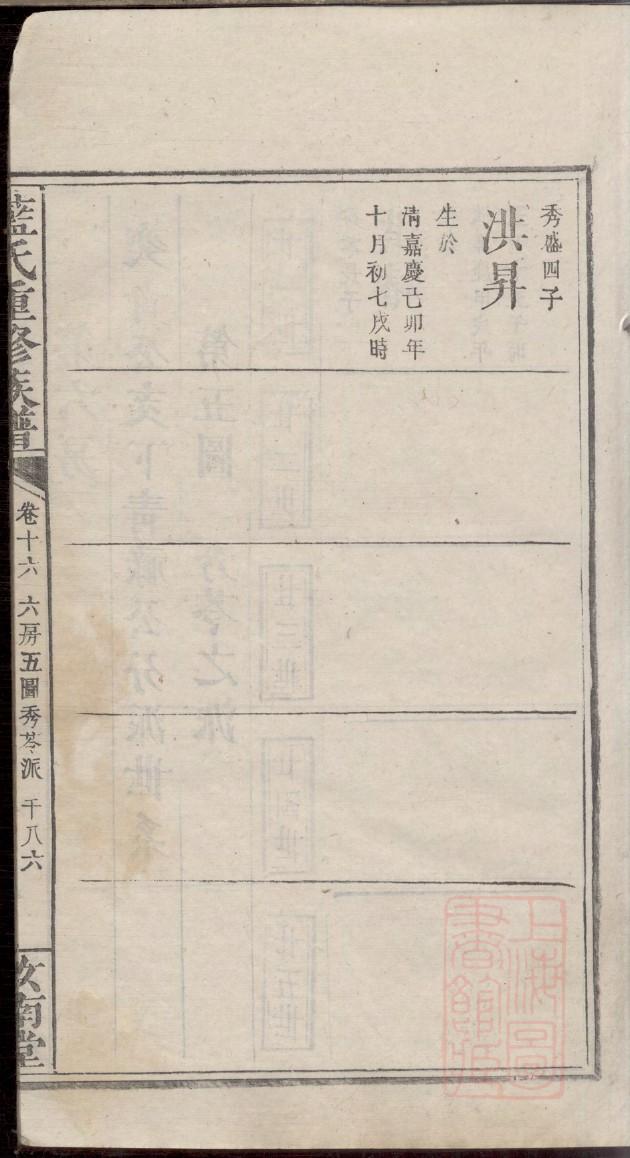 秀盛四子
洪昇
生於
清嘉慶己卯年
十月初七戌時
藍氏重修族譜
卷十六 六房五圖秀苓派 千八六
汝南堂
上海圖
書館藏